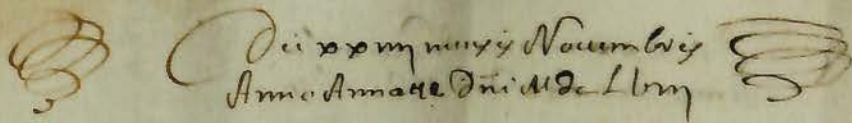 Die xxiiij mensis Novembris
Anno a Na.te Dni M dc Lviij